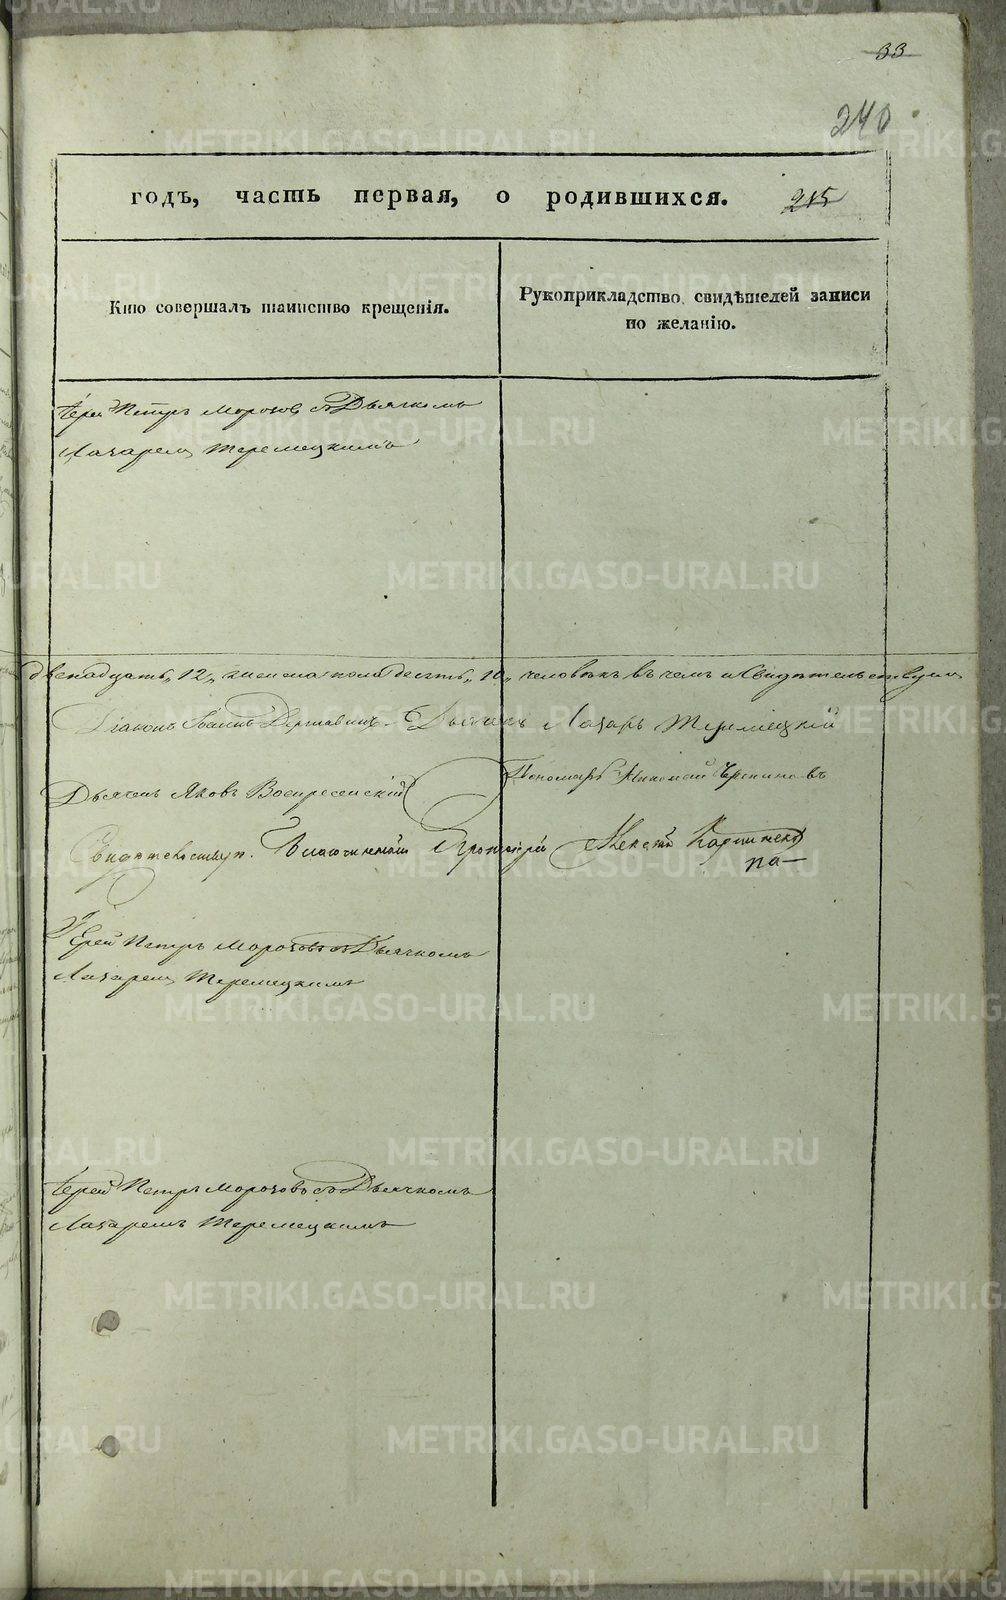 33
240
годъ, часть первая, о родившихся. 215
Кто совершалъ таинство крещенія.
Рукоприкладство свидѣтелей записи
по желанію.
Іерей Петръ Морозов съ Дьячкомъ
Лазарем Теремецкимъ
двенадцать „12„ женска пола десять „10„ человѣкъ въ чемъ и Свидѣтельствуем
Діаконъ Іоаннъ Державинъ Дьячекъ Лазарь Теремецкій
Дьячекъ Яковъ Воскресенскій
Пономарь Николай
Свидетельствуп. Благочинный Протоіерей Алексей
Іерей Петръ Морозовъ съ Дьячкомъ
Лазарем Теремецкимъ
Іерей Петръ Морозовъ съ Дьячкомъ
Лазаремъ Теремецкимъ
METRIKI.GASO-URAL.RU